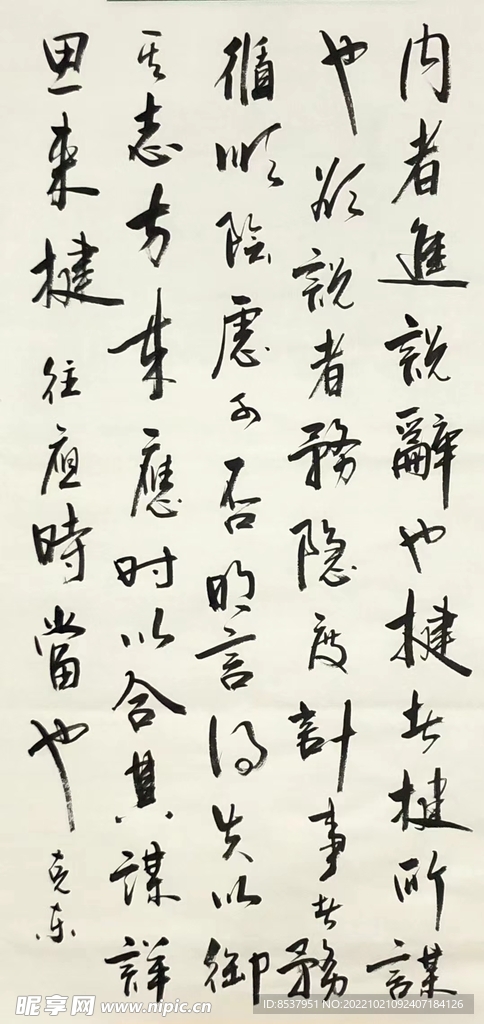 内者進説辭也揵者揵所謀
也欲説者務隐度計事者務
循順陰慮可否明言得失以御
其志方来應时以合其謀詳
思来揵往应時當也
克东
昵享网 www.nipic.cn
ID:8537951 NO:20221021092407184126